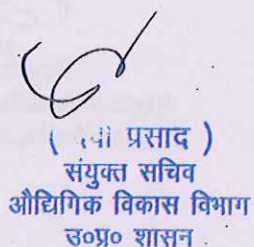 ( प्रसाद )
संयुक्त सचिव
औद्यिगिक विकास विभाग
उ०प्र० शासन